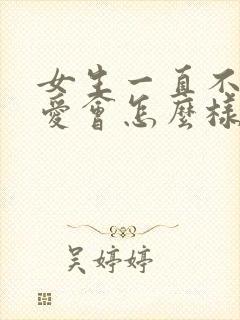 女生一直不
愛會怎麼樣
吳婷婷